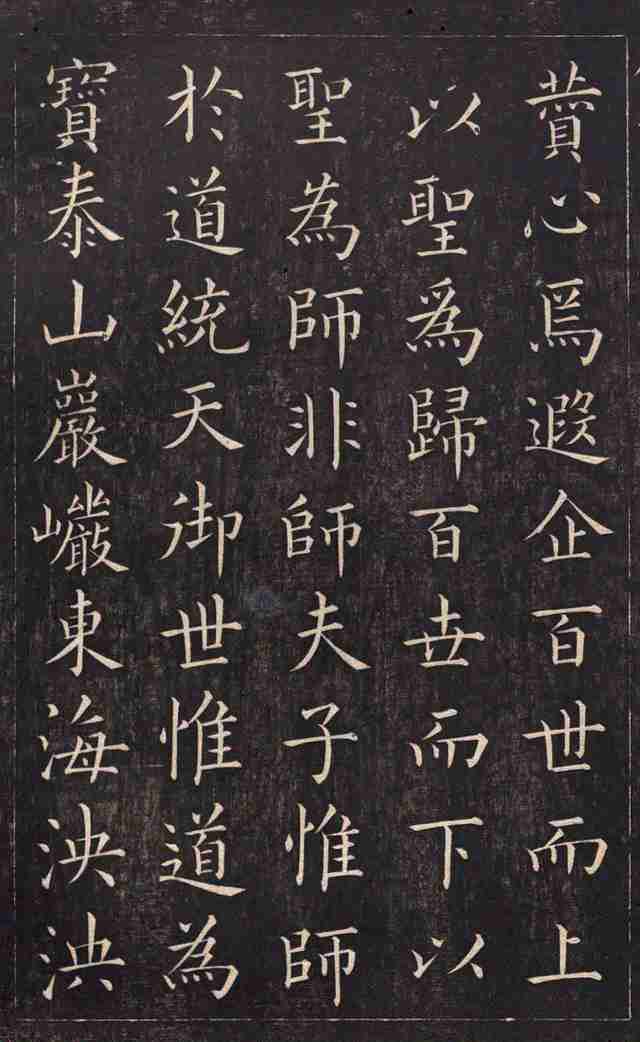 贊心焉遐企百世而上
以聖爲歸百世而下以
聖為師非師夫子惟師
於道統天御世惟道為
寶泰山巖巗東海泱泱